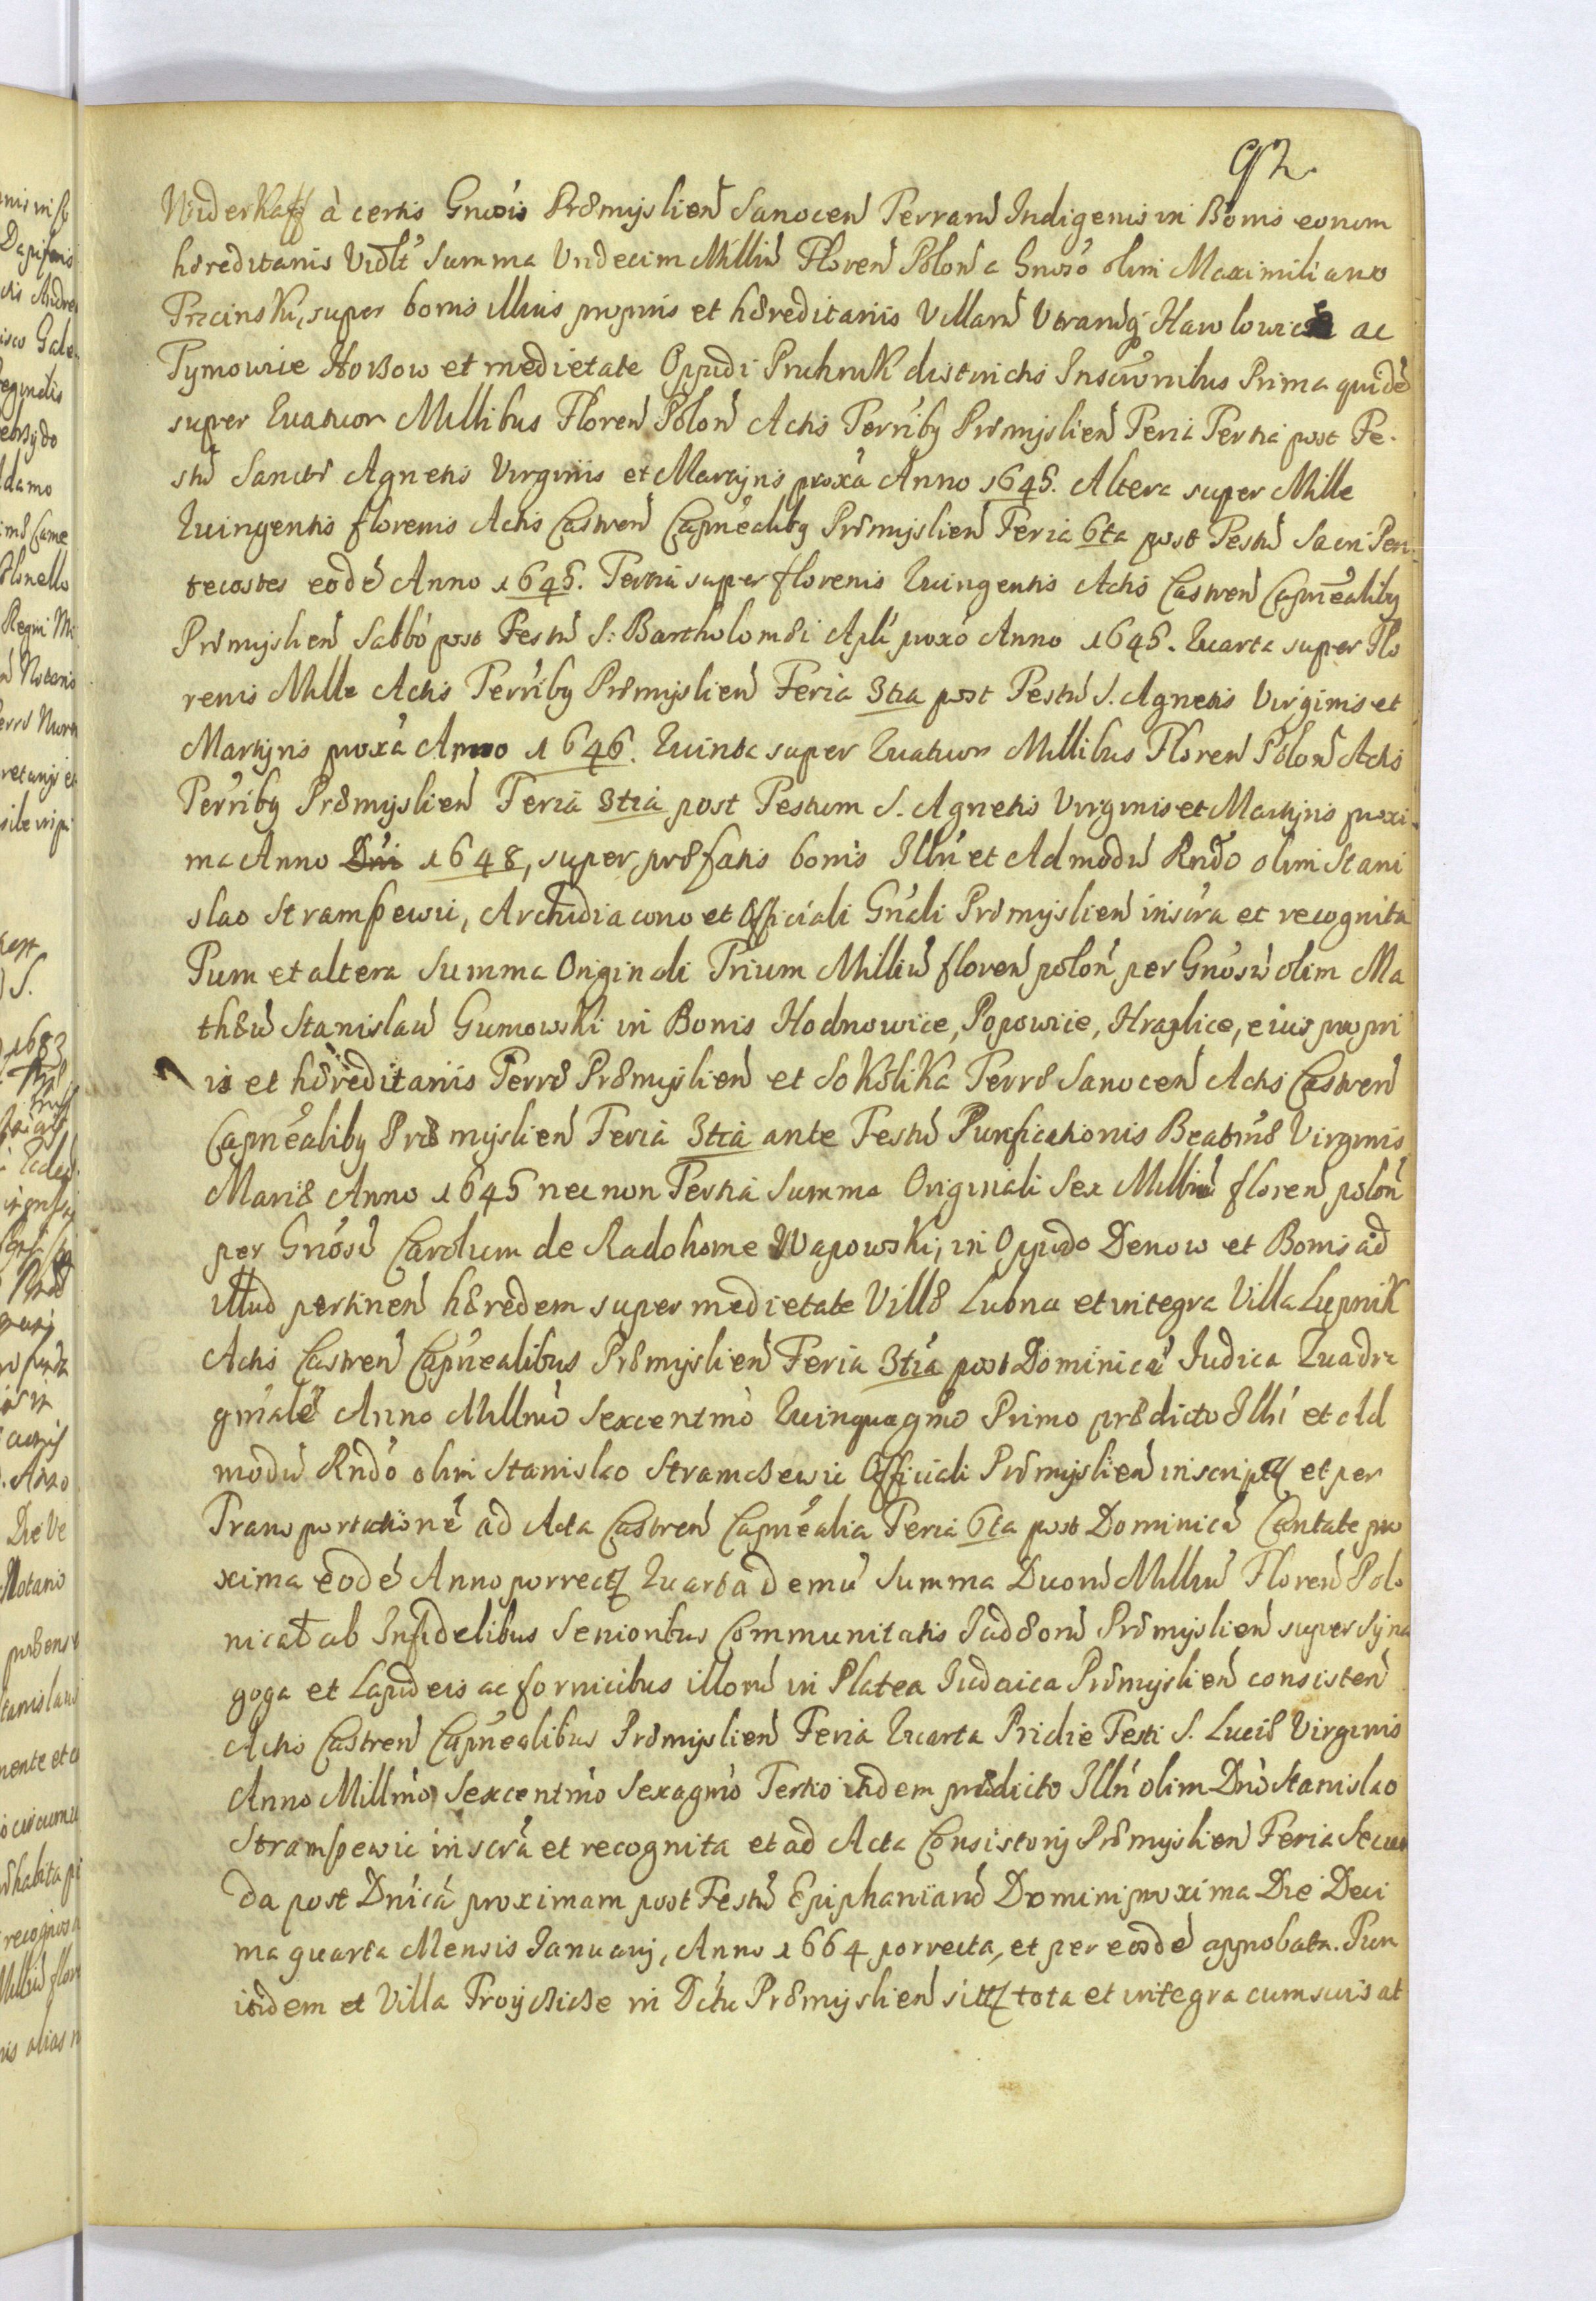 92.
Widerkaff à certis Gnosis Præmyslien Sanocen Terrarũ Indigenis in Bonis eorum
hæreditariis Vidlt Summa Undecim Milliũ Floren Polon a Gnoso olim Maximiliano
Trzcinski, super bonis illius propriis et hæreditariis Villarũ Utrarũq Hawlowice ac
Tymowice Hoβow et medietate Oppidi Pruhnik districtis Inscriõnibus Prima quidẽ
super Quatuor Millibus Floren Polon Actis Terriby Præmyslien Feria Tertia post Fe-
stũ Sanctæ Agnetis Virginis et Martyris proxa Anno 1645. Altera super Mille
Quingentis florenis Actis Castren Capnealiby Præmyslien Feria 6ta post Festũ Sacri Pen-
tecostes eodẽ Anno 1645. Tertia super florenis Quingentis Actis Castren Capnealiby
Præmyslien Sabbo post Festũ S: Bartholomæi Apli proxo Anno 1645. Quarta super Flo
renis Mille Actis Terriby Præmyslien Feria 3tia post Festũ S. Agnetis Virginis et
Martyris proxa Anno 1646. Quinta super Quatuor Millibus Floren Polon Actis
Terriby Præmyslien Feria 3tia post Festum S. Agnetis Virginis et Martyris proxi-
ma Anno Dni 1648, super præfatis bonis Illri et Admodũ Rndo olim Stani
slao Stramβewic, Archidiacono et Officiali Gnali Præmyslien inscra et recognita
Tum et altera Summa Originali Trium Milliũ floren polon per Gnosũ olim Ma
thæũ Stanislaũ Gumowski in Bonis Hodnowice, Popowice, Hraplice, eius propri
is et hæreditariis Terræ Præmyslien et Sokolika Terræ Sanocen Actis Castren
Capnealiby Præmyslien Feria 3tia ante Festũ Purificationis Beatmæ Virginis
Mariæ Anno 1645 necnon Tertia Summa Originali Sex Milliũ floren polon
per Gnosũ Carolum de Radohome Wapowski, in Oppido Denow et Bonis ad
illud pertinen hæredem super medietate Villæ Lubna et integra Villa Lupnik
Actis Castren Capnealibus Præmyslien Feria 3tia post Dominicã Judica Quadra
gmalẽ Anno Millmo Sexcentmo Quinquagmo Primo prædicto Illri et Ad
modũ Rndo olim Stanislao Stramβewic Officiali Præmyslien inscripta et per
Transportationẽ ad Acta Castren Capnealia Feria 6ta post Dominicã Cantate pro
xima eodẽ Anno porrecta Quarta demũ Summa Duorũ Milliũ Floren Polo
nicał ab Infidelibus Senioribus Communitatis Judæorũ Præmyslien super Syna
goga et Lapideis ac fornicibus illorũ in Platea Judaica Præmyslien consisten
Actis Castren Capnealibus Præmyslien Feria Quarta Pridie Festi S. Luciæ Virginis
Anno Millmo Sexcentmo Sexagmo Tertio itidem prædicto Illri olim Dno Stanislao
Stramβewic inscra et recognita et ad Acta Consistorij Præmyslien Feria Secun
da post Dnicã proximam post Festũ Epiphaniarũ Domini proxima Die Deci
ma quarta Mensis Januarij, Anno 1664 porrecta, et per eosdẽ approbata. Tum
itidem et Villa Troyczicze in Dctu Præmyslien sita tota et integra cum suis at